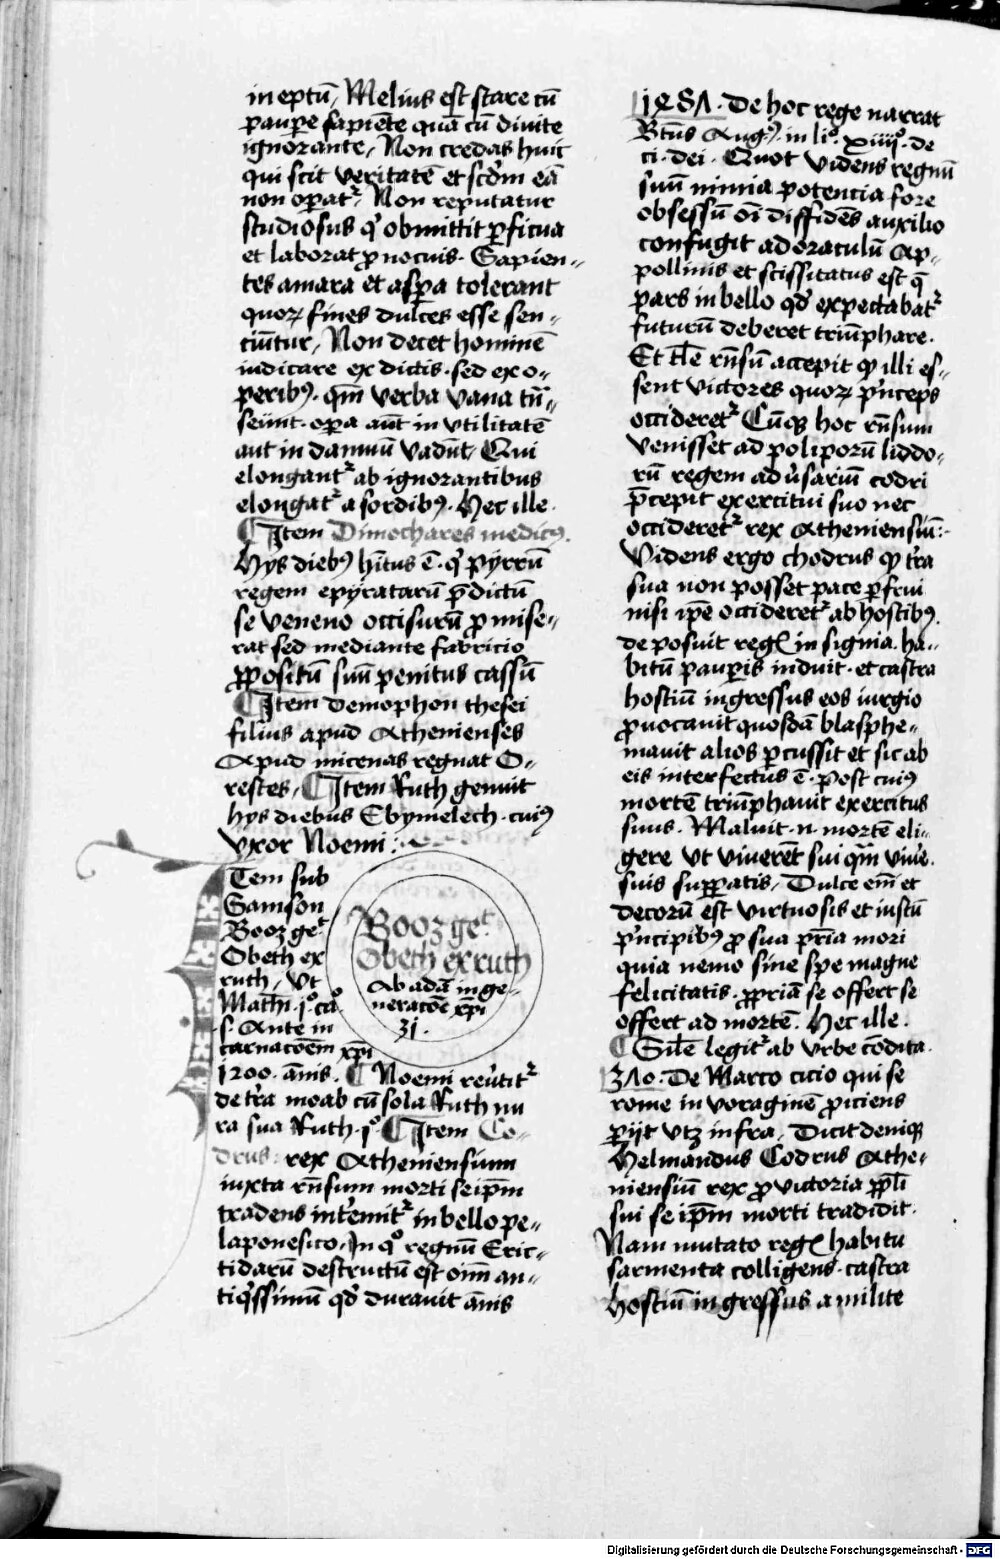 ineptū, Melius est stare cū
paupere sapiēte quā cū divite
ignorante, Non credas huic
qui scit veritatē et scd'm eā
non operat᷑ Non reputatur
studiosus qͥ obmittit perficua
et laborat p nocuis. Sapien-
tes amara et aspa tolerant
quorꝫ fines dulces esse sen-
ciūtur, Non decet hominē
iudicare ex dictis. sed ex o-
peribꝰ. qm̄ verba vana
opa aūt in vtilitatē
aut in damnū vadūt, Qui
elongant᷑ ab ignorantibus
elongat᷑ a sordibꝰ. Hec ille.
Item Dimochares medicꝰ.
Hys diebꝰ hītus ē. qͥ pyrrū
regem epyratarū p̄dictū
se veneno occisurū promise-
rat sed mediante fabricio
ppositū suū penitus cassū
Item demophon thesei
filius apud Athenienses
Apud micenas regnat O-
restes, Item Ruth genuit
hys diebus Ebymelech. cuiꝰ
vxor Noemi:
ITem sub
Samson
Booz ge᷑
Obeth ex
ruth, vt
Math. j°. ca°
Ante in
carnacōem xp̄i
1200. ānis. Noemi reūtit᷑
de tra moab cū sola Ruth nu
ra sua Ruth. j°. Item Co-
drus. rex Atheniensium
iuxta rn̄sum morti seip̄m
tradens intemit᷑ in bello pe-
laponesico. In qͦ regnū Eric-
tidarū destructū est oīm an-
tiqͥssimū qd' duravit ānis
Booz ge᷑
Obeth ex ruth
Ab adā in ge-
neracōe xp̄i
31.
De hoc rege narrat
Btūs Augꝰ. in li°. xiiij°. de
ci. dei. Quot videns regnū
suū nimia potencia fore
obsessū oī diffidēs auxilio
confugit ad oraculū Ap-
pollinis et scissitatus est q̄
pars in bello qd' expectabat᷑
futurū deberet triūphare.
Et tl̄e rn̄sū accepit qꝫ illi es-
sent victores quorꝫ pͥnceps
occideret᷑ Cūqꝫ hoc rn̄sum
venisset ad
rū regem ad'usariū codri
p̄cepit exercitui suo nec
occideret᷑ rex Atheniensiū:
Videns ergo chodrus qꝫ tra
sua non posset pace perfrui
nisi ip̄e occideret᷑ ab hostibꝰ.
deposuit regl' insignia. ha-
bitū pauperis induit. et castra
hostiū ingressus eos iurgio
provocavit quosdā blasphe-
mavit alios percussit et sic ab
eis interfectus ē. post cuiꝰ
mortē triūphavit exercitus
suus. Maluit. n. mortē eli-
gere vt viverēt sui qm̄ vive.
suis suppatis, Dulce em̄ et
decorū est virtuosis et iustū
pͥncipibꝰ pro sua pr̄ia mori
quia nemo sine spe magne
felicitatis. ppriā se offert se
offert ad mortē. Hec ille.
Sil'e legit᷑ ab vrbe cōdita.
De Marco cicio qui se
rome in voraginē proiciens
periit vtꝫ infra, Dicit deniqꝫ
Helmandus Codrus Athe-
niensiū rex pro victoria ppl'i
sui se ip̄m morti tradidit.
Nam mutato regl' habitu
sarmenta colligens. castra
hostiū ingressus a milite
Digitalisierung gefördert durch die Deutsche Forschungsgemeinschaft - DFG